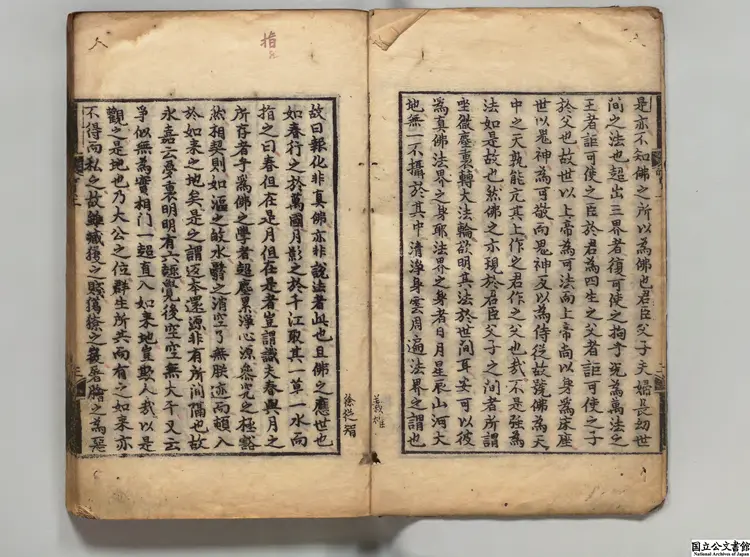 是亦不知佛之所以為佛也君臣父子夫婦長幼世
間之法也超出三界者復可使之拘乎既為萬法之
王者詎可使之臣於君為四生之父者詎可使之子
於父也故世以上帝為可法而上帝尚以身為床座
世以鬼神為可敬而鬼神反以為侍從故號佛為天
中之天孰能元其上作之君作之父也哉不是強為
法如是故也然佛之亦現於君臣父子之間者所謂
坐微塵裏轉大法輪欲明其法於世間耳安可以彼
為真佛法界之身耶法界之身者日月星辰山河大
地無一不攝於其中清淨身雲周遍法界之謂也
故曰報化非真佛亦非說法者此也且佛之應世也
如春行之於萬國月影之於千江取其一草一水而
指之曰春但在是月但在是者豈謂識夫春與月之
所存者乎為佛之學者超塵累淨心源參究之極豁
然相契則如漚之故水翳之消空了無朕迹而頓入
於如來之地矣是之謂返本還源非有所間隔也故
永嘉云夢裏明明有六趣覺後空空無大千又云
爭似無為實相門一超直入如来地豈欺人哉以是
觀之是地也乃大公之位群生所共而有之如來亦
不得而私之故雖臧獲之賤獦獠之裔屠膾之為惡
国立公文書館
National Archives of Japan